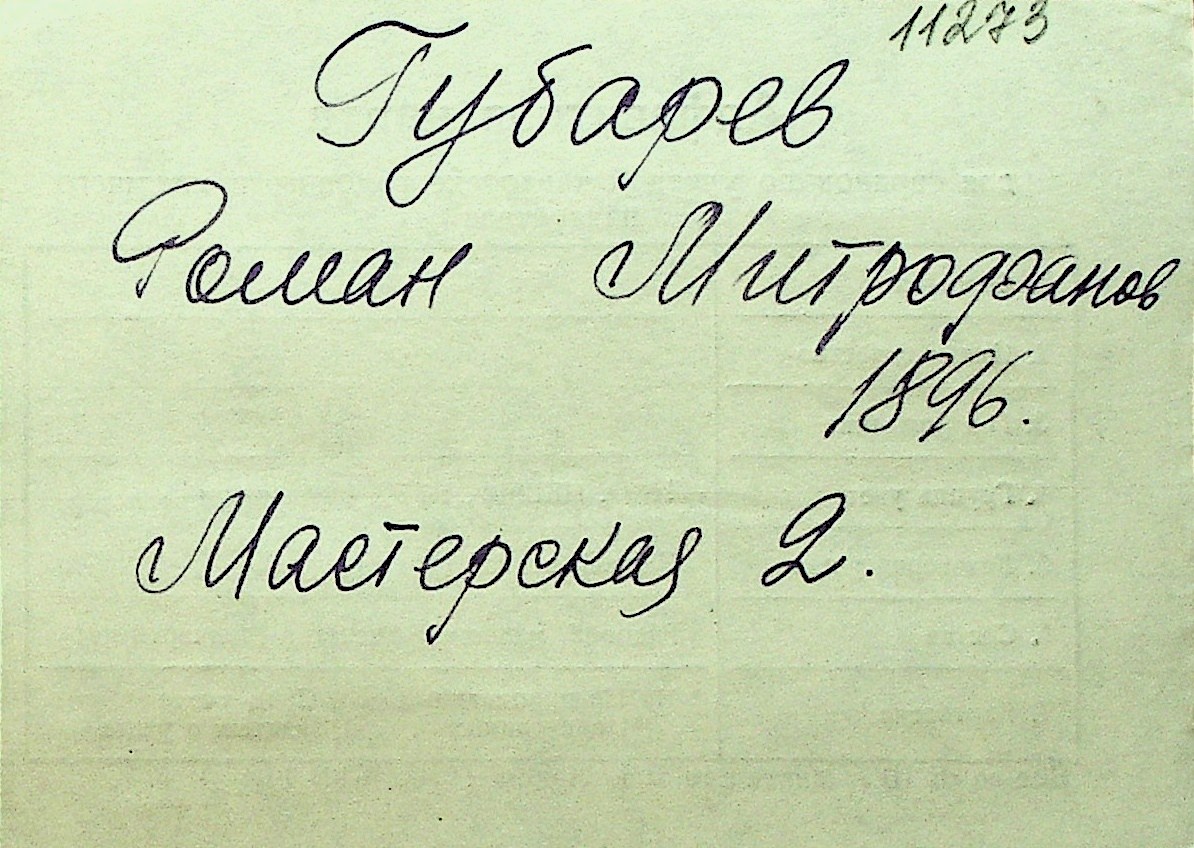 11273
Губарев
Роман Митрофанов
1896.
Мастерская 2.